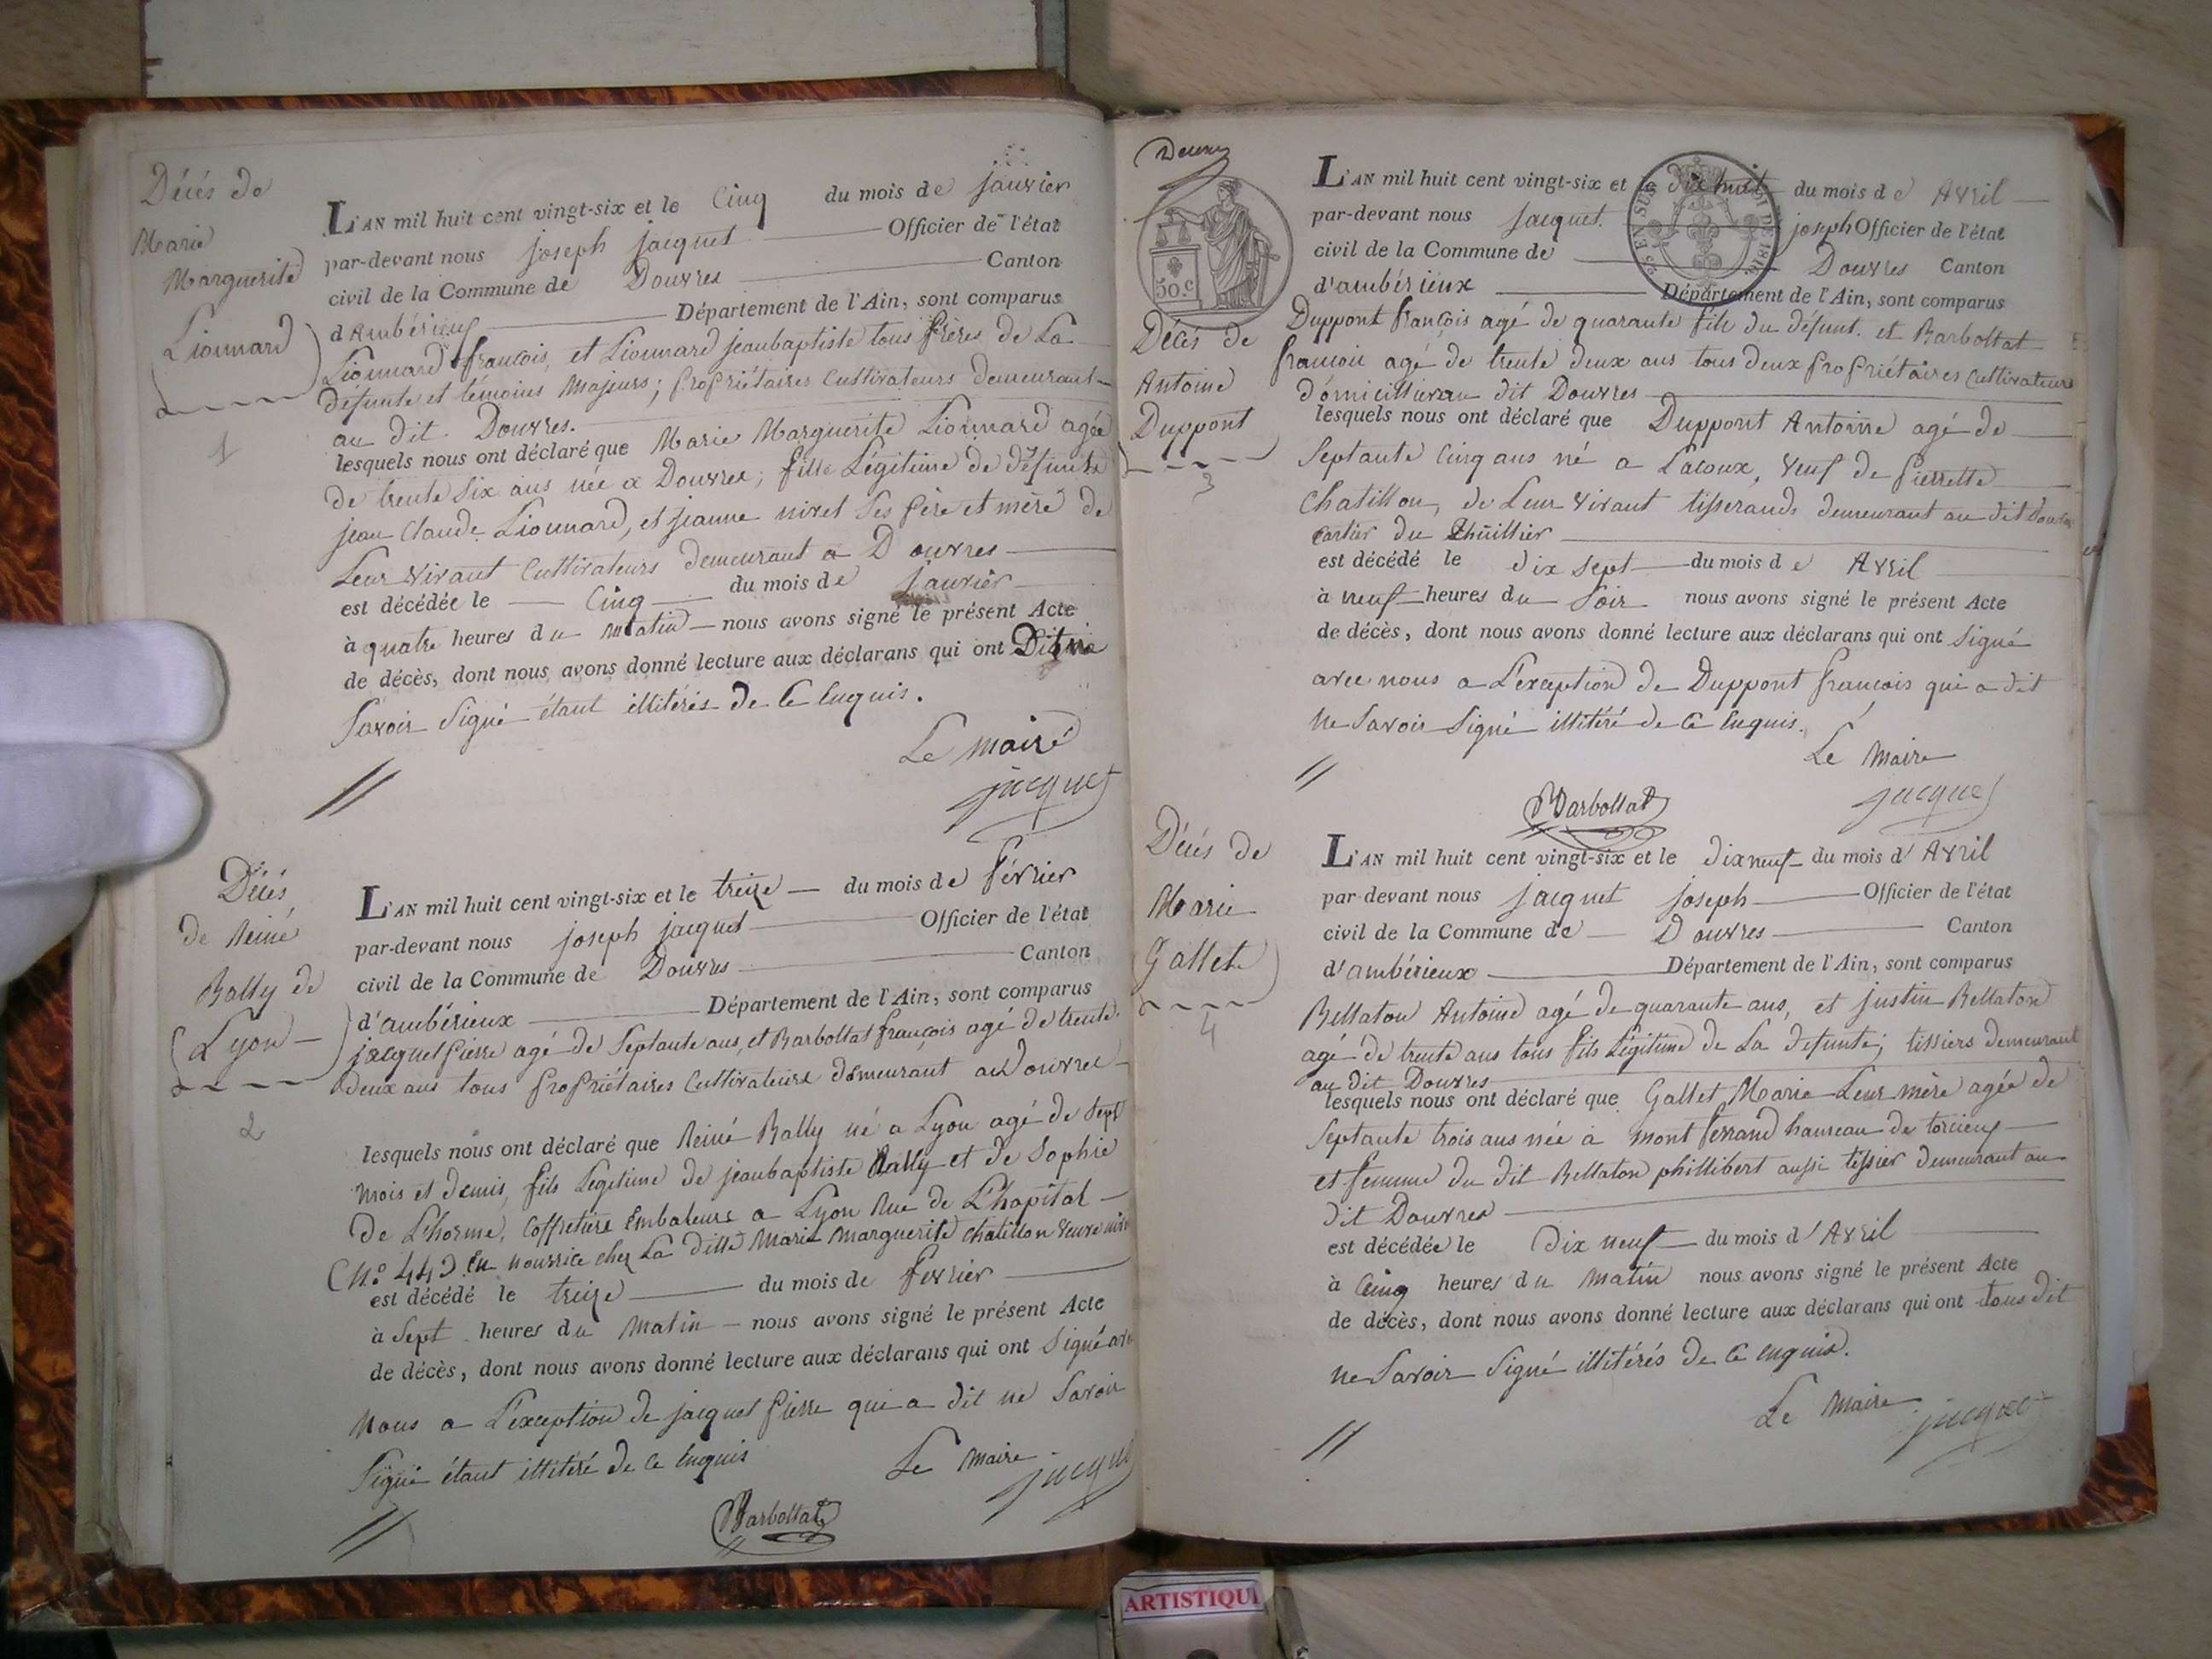 Décés de
Marie
Marguerite
Lionnard
1
L'AN mil huit cent vingt-six et le Cinq du mois de janvier
par-devant nous joseph jacquet Officier de l'état
civil de la Commune de Douvres Canton
d'Ambérieux Département de l'Ain, sont comparus
Lionnard françois, et Lionnard jeanbaptiste tous frères de La
défunte et témoins Majeurs; propriétaires Cultivateurs demeurant
au dit Douvres.
lesquels nous ont déclaré que Marie Marguerite Lionnard agée
de trente six ans née a Douvres; fille Légitime de défunts
jean Claude Lionnard, et jeanne nivet Ses père et mère de
Leur vivant Cultivateurs demeurant a Douvres
est décédée le Cinq du mois de janvier
à quatre heures du matin nous avons signé le présent Acte
de décès, dont nous avons donné lecture aux déclarans qui ont Dit ne
Savoir Signé étant illitérés de Ce Enquis.
Le maire
jacquet
Décés
de Reiné
Bally de
Lyon
2
L'AN mil huit cent vingt-six et le treize du mois de février
par-devant nous joseph jacquet Officier de l'état
civil de la Commune de Douvres Canton
d'ambérieux Département de l'Ain, sont comparus
jacquet pierre agé de Septante ans, et Barbollat françois agé de trente
deux ans tous propriétaires Cultivateurs demeurant a Douvres
lesquels nous ont déclaré que Reiné Bally né a Lyon agé de Sept
mois et demis, fils Légitime de jeanbaptiste Bally et de Sophie
de L'horme, Coffretiers Embaleurs a Lyon Rue de L'hapital
(N° 44) En nourrice chez La ditte Marie Marguerite chatillon Veuve
est décédé le treize du mois de fevrier
à Sept heures du Matin nous avons signé le présent Acte
de décès, dont nous avons donné lecture aux déclarans qui ont Signé avec
Nous a L'exception de jacquet pierre qui a dit ne Savoir
Signé étant illitéré de Ce Enquis
Le Maire
jacquet
Barbollat
50.C
Décés de
Antoine
Duppont
3
L'AN mil huit cent vingt-six et le dix huit du mois de Avril
par-devant nous jacquet joseph Officier de l'état
civil de la Commune de Douvres Canton
d'ambérieux Département de l'Ain, sont comparus
Duppont françois agé de quarante fils du défunt. et Barbollat
françois agé de trente deux ans tous deux propriétaires Cultivateurs
domicillier au dit Douvres
lesquels nous ont déclaré que Duppont Antoine agé de
Septante Cinq ans né a Lacoux, Veuf de pierrette
Chatillon, de Leur vivant tisserands demeurant au dit Douvres
cartier du Thuillier
est décédé le dix Sept du mois de Avril
à neuf heures du Soir nous avons signé le présent Acte
de décès, dont nous avons donné lecture aux déclarans qui ont Signé
avec nous a L'exception de Duppont françois qui a dit
ne Savoir Signé illitéré de Ce Enquis.
Le Maire
jacquet
Barbollat
Décés de
Marie
Gallet
4
L'AN mil huit cent vingt-six et le dixneuf du mois d'Avril
par-devant nous jacquet joseph Officier de l'état
civil de la Commune de Douvres Canton
d'ambérieux Département de l'Ain, sont comparus
Bellaton Antoine agé de quarante ans, et justin Bellaton
agé de trente ans tous fils Légitime de La défunte; tissiers demeurant
au dit Douvres
lesquels nous ont déclaré que Gallet Marie Leur mère agée de
Septante trois ans née à mont ferrand hameau de torcieux
et femme du dit Bellaton phillibert aussi tissier demeurant au
dit Douvres
est décédée le dix neuf du mois d'Avril
à Cinq heures du Matin nous avons signé le présent Acte
de décès, dont nous avons donné lecture aux déclarans qui ont tous dit
ne Savoir Signé illitérés de Ce enquis.
Le Maire
jacquet
ARTISTIQU